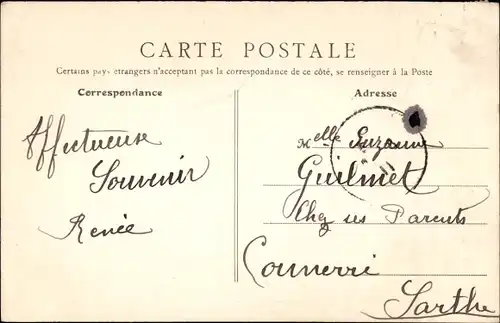 CARTE POSTALE
Certains pays étrangers n'acceptant pas la correspondance de ce côté, se renseigner à la Poste
Correspondance
Affectueuse
Souvenir
Renée
Adresse
Melle Suzanne
Guilmet
Chez ses Parents
Connerré
Sarthe